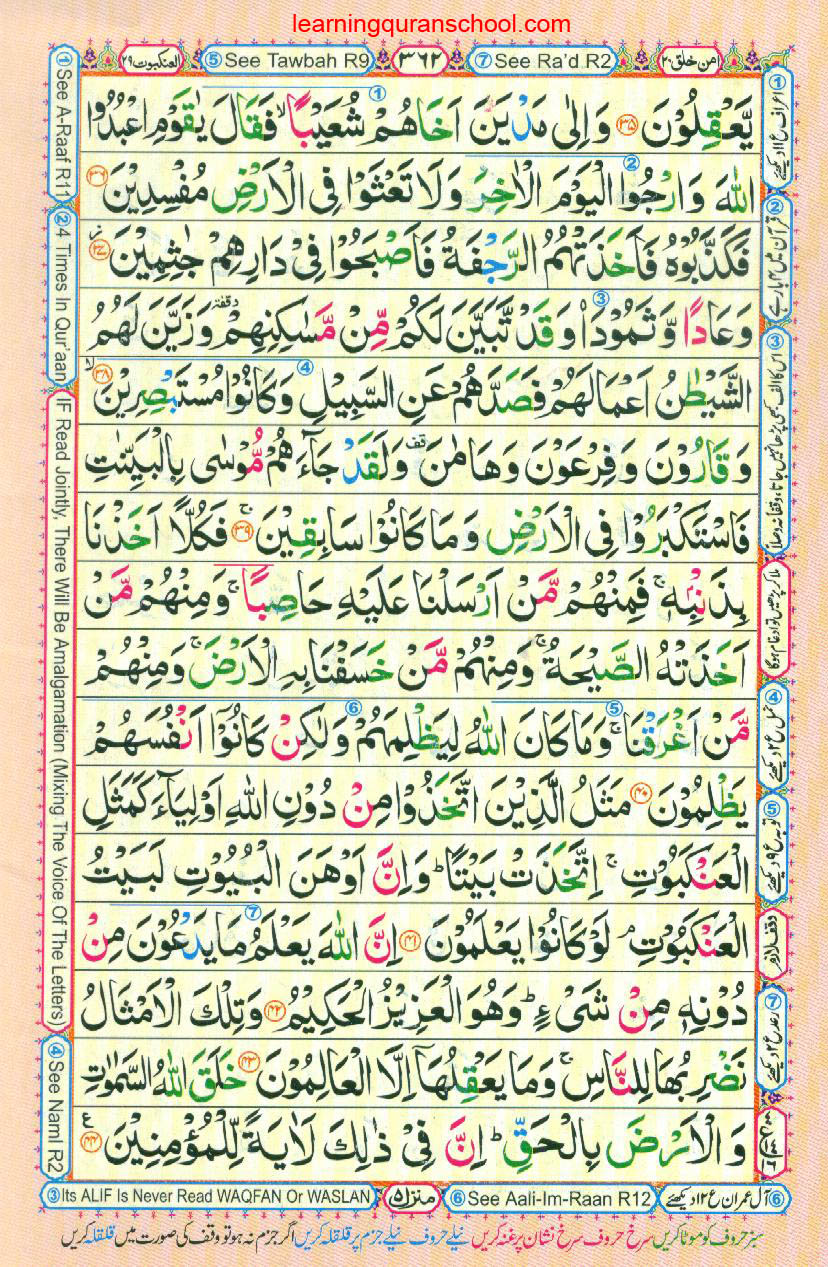 learningquranschool.com
امن خلق ۲۰ ⑦ See Ra'd R2 ۳۶۲ ⑤ See Tawbah R9 العنکبوت ۲۹
يَّعْقِلُوْنَ ﴿۳۵﴾ وَ اِلٰى مَدْيَنَ اَخَاهُمْ شُعَيْبًا ۙ فَقَالَ يٰقَوْمِ اعْبُدُوا
اللّٰهَ وَارْجُوا الْيَوْمَ الْاٰخِرَ وَلَا تَعْثَوْا فِى الْاَرْضِ مُفْسِدِيْنَ ﴿۳۶﴾
فَكَذَّبُوْهُ فَاَخَذَتْهُمُ الرَّجْفَةُ فَاَصْبَحُوْا فِىْ دَارِهِمْ جٰثِمِيْنَ ﴿۳۷﴾
وَعَادًا وَّ ثَمُوْدَا۟ وَقَدْ تَّبَيَّنَ لَكُمْ مِّنْ مَّسٰكِنِهِمْ وقفة وَزَيَّنَ لَهُمُ
الشَّيْطٰنُ اَعْمَالَهُمْ فَصَدَّهُمْ عَنِ السَّبِيْلِ وَكَانُوْا مُسْتَبْصِرِيْنَ ﴿۳۸﴾ ۙ
وَ قَارُوْنَ وَ فِرْعَوْنَ وَهَامٰنَ قف وَلَقَدْ جَآءَهُمْ مُّوْسٰى بِالْبَيِّنٰتِ
فَاسْتَكْبَرُوْا فِى الْاَرْضِ وَمَا كَانُوْا سَابِقِيْنَ ﴿۳۹﴾ ۚ فَكُلًّا اَخَذْنَا
بِذَنْۢبِهٖ ۚ فَمِنْهُمْ مَّنْ اَرْسَلْنَا عَلَيْهِ حَاصِبًا ۚ وَمِنْهُمْ مَّنْ
اَخَذَتْهُ الصَّيْحَةُ ۚ وَمِنْهُمْ مَّنْ خَسَفْنَا بِهِ الْاَرْضَ ۚ وَمِنْهُمْ
مَّنْ اَغْرَقْنَا ۚ وَمَا كَانَ اللّٰهُ لِيَظْلِمَهُمْ وَلٰكِنْ كَانُوْٓا اَنْفُسَهُمْ
يَظْلِمُوْنَ ﴿۴۰﴾ مَثَلُ الَّذِيْنَ اتَّخَذُوْا مِنْ دُوْنِ اللّٰهِ اَوْلِيَآءَ كَمَثَلِ
الْعَنْكَبُوْتِ ۚ اِتَّخَذَتْ بَيْتًا ؕ وَاِنَّ اَوْهَنَ الْبُيُوْتِ لَبَيْتُ
الْعَنْكَبُوْتِ ۘ لَوْ كَانُوْا يَعْلَمُوْنَ ﴿۴۱﴾ اِنَّ اللّٰهَ يَعْلَمُ مَا يَدْعُوْنَ مِنْ
دُوْنِهٖ مِنْ شَىْءٍ ؕ وَهُوَ الْعَزِيْزُ الْحَكِيْمُ ﴿۴۲﴾ وَتِلْكَ الْاَمْثَالُ
نَضْرِبُهَا لِلنَّاسِ ۚ وَمَا يَعْقِلُهَآ اِلَّا الْعَالِمُوْنَ ﴿۴۳﴾ خَلَقَ اللّٰهُ السَّمٰوٰتِ
وَ الْاَرْضَ بِالْحَقِّ ؕ اِنَّ فِىْ ذٰلِكَ لَاٰيَةً لِّلْمُؤْمِنِيْنَ ﴿۴۴﴾ ع
① اعراف ع ۱۱ دیکھئے
② قرآن میں ۴ بار ہے
③ اس کا الف کبھی پڑھا نہیں جاتا، وقفاً نہ وصلاً
ملا کر پڑھیں تو ادغام ہوگا
④ نمل ع ۲ دیکھئے
⑤ توبہ ع ۹ دیکھئے
وقف لازم
⑦ رعد ع ۲ دیکھئے
① See A-Raaf R11
② 4 Times In Qur'aan
IF Read Jointly, There Will Be Amalgamation (Mixing The Voice Of The Letters)
④ See Naml R2
⑥ آل عمران ع ۱۲ دیکھئے ⑥ See Aali-Im-Raan R12 منزل ۵ ③ Its ALIF Is Never Read WAQFAN Or WASLAN
سبز حروف کو موٹا کریں سرخ حروف سرخ نشان پر غنہ کریں نیلے حروف نیلے جزم پر قلقلہ کریں اگر جزم نہ ہو تو وقف کی صورت میں قلقلہ کریں